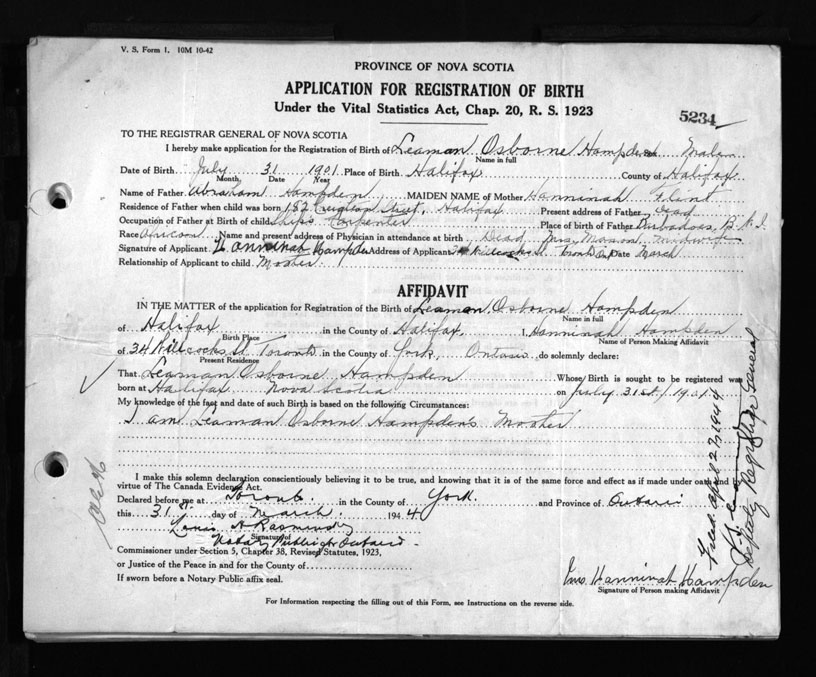 V. S. Form 1. 10M 10-42
PROVINCE OF NOVA SCOTIA
APPLICATION FOR REGISTRATION OF BIRTH
Under the Vital Statistics Act, Chap. 20, R. S. 1923
5234
TO THE REGISTRAR GENERAL OF NOVA SCOTIA
I hereby make application for the Registration of Birth of Leaman Osborne Hampden Male
Name in full Sex
Date of Birth July 31 1901 Place of Birth Halifax County of Halifax
Month Date Year
Name of Father Abraham Hampden MAIDEN NAME of Mother Hanninah Flint
Residence of Father when child was born 182 Creighton Street, Halifax Present address of Father Dead
Occupation of Father at Birth of child Ships Carpenter Place of Birth of Father Barbadoes B. W. I.
Race African Name and present address of Physician in attendance at birth Dead Mrs Mason midwife
Signature of Applicant Hanninah Hampden Address of Applicant 34 Willcocks St Toronto Ont Date March
Relationship of Applicant to child Mother
AFFIDAVIT
IN THE MATTER of the application for Registration of the Birth of Leaman Osborne Hampden
Name in full
of Halifax in the County of Halifax, I, Hanninah Hampden
Birth Place Name of Person Making Affidavit
of 34 Willcocks St Toronto in the County of York, Ontario do solemnly declare:
Present Residence
That Leaman Osborne Hampden Whose Birth is sought to be registered was
born at Halifax, Nova Scotia on July 31st 1901
My knowledge of the fact and date of such Birth is based on the following Circumstances:
I am Leaman Osborne Hampdens Mother
I make this solemn declaration conscientiously believing it to be true, and knowing that it is of the same force and effect as if made under oath and by
virtue of The Canada Evidence Act.
Declared before me at Toronto in the County of York and Province of Ontario
this 31st day of March 1944
Louis A
Signature of
Notary Public Ontario
Commissioner under Section 5, Chapter 38, Revised Statutes, 1923,
or Justice of the Peace in and for the County of
If sworn before a Notary Public affix seal.
Mrs. Hanninah Hampden
Signature of Person making Affidavit
For Information respecting the filling out of this Form, see Instructions on the reverse side.
Filed April 27, 1944
Deputy Registrar General